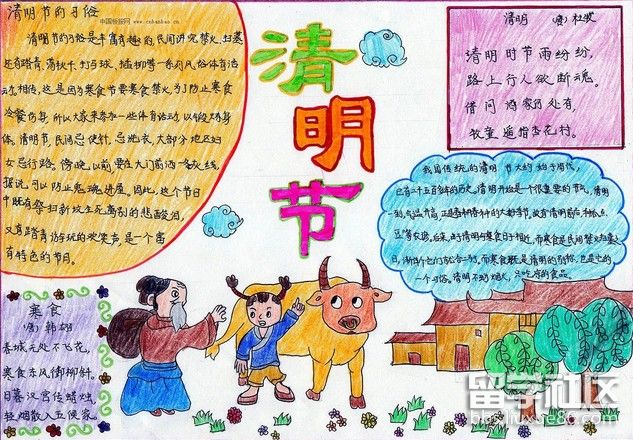 中国板报网
www.cnbanbao.cn
清明节的习俗
清明节的习俗是丰富有趣的,民间讲究禁火、扫墓
还有踏青、荡秋千、打马球、插柳等一系列风俗体育活
动。相传,这是因为寒食节要寒食禁火,为了防止寒食
冷餐伤身,所以大家来参加一些体育活动,以锻炼身
体。清明节,民间忌使针,忌洗衣,大部分地区妇
女忌行路。傍晚以前,要在大门前洒一条灰线,
据说,可以防止鬼魂进屋。因此,这个节日
中既有祭扫新坟生死离别的悲酸泪,
又有踏青游玩的欢笑声,是一个富
有特色的节日。
清明节
清明 (唐) 杜牧
清明时节雨纷纷,
路上行人欲断魂。
借问酒家何处有,
牧童遥指杏花村。
我国传统的清明节大约始于周代,
已有二千五百多年的历史。清明开始是一个很重要的节气,清明
一到,气温升高,正是春耕春种的大好季节,故有清明前后,种瓜点
豆等农谚。后来,由于清明与寒食的日子相近,而寒食是民间禁火扫墓之
日,渐渐的
合二为一,而寒食既是清明的别称,也是它的
一个习俗。清明不动烟火,只吃凉的食品。
寒食
(唐) 韩翃
春城无处不飞花,
寒食东风御柳斜。
日暮汉宫传蜡烛,
轻烟散入五侯家。
留学社区